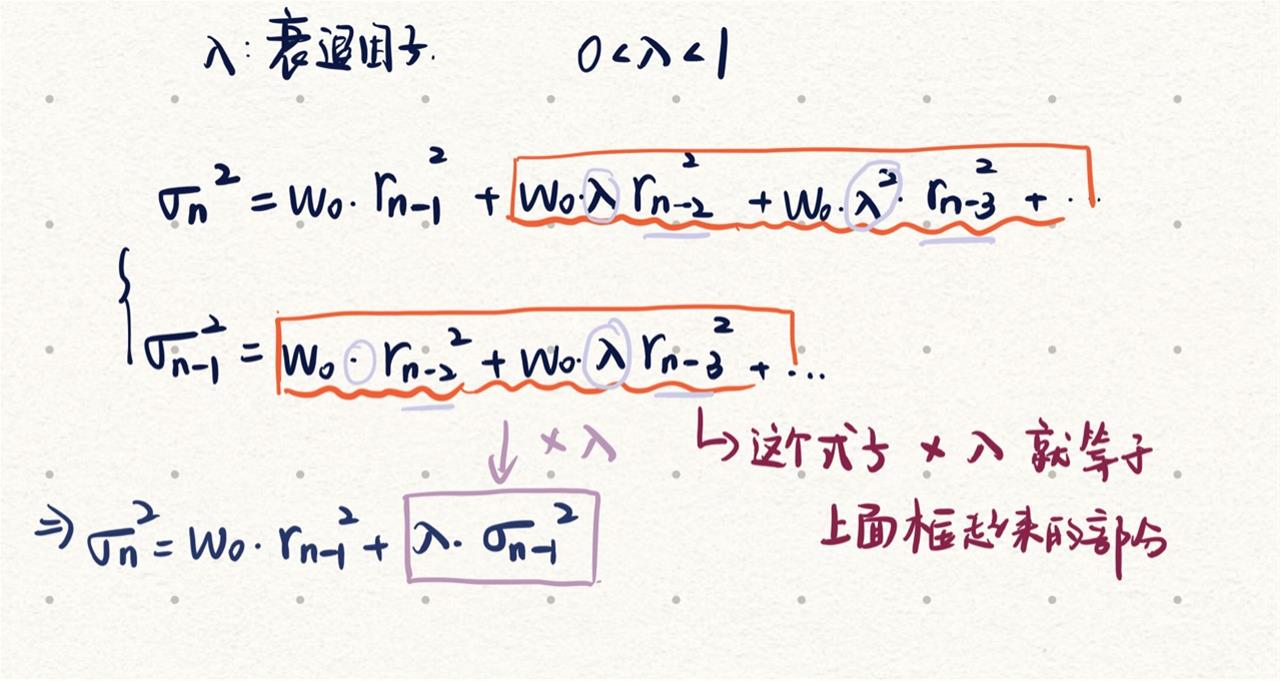 λ: 衰退因子. 0<λ<1
σn² = w₀·rn-1² + w₀·λ rn-2² + w₀·λ²·rn-3² + ...
σn-1² = w₀·rn-2² + w₀·λ rn-3² + ...
↓ ×λ
↳ 这个式子 × λ 就等于
上面框起来的部分
⇒ σn² = w₀·rn-1² + λ·σn-1²